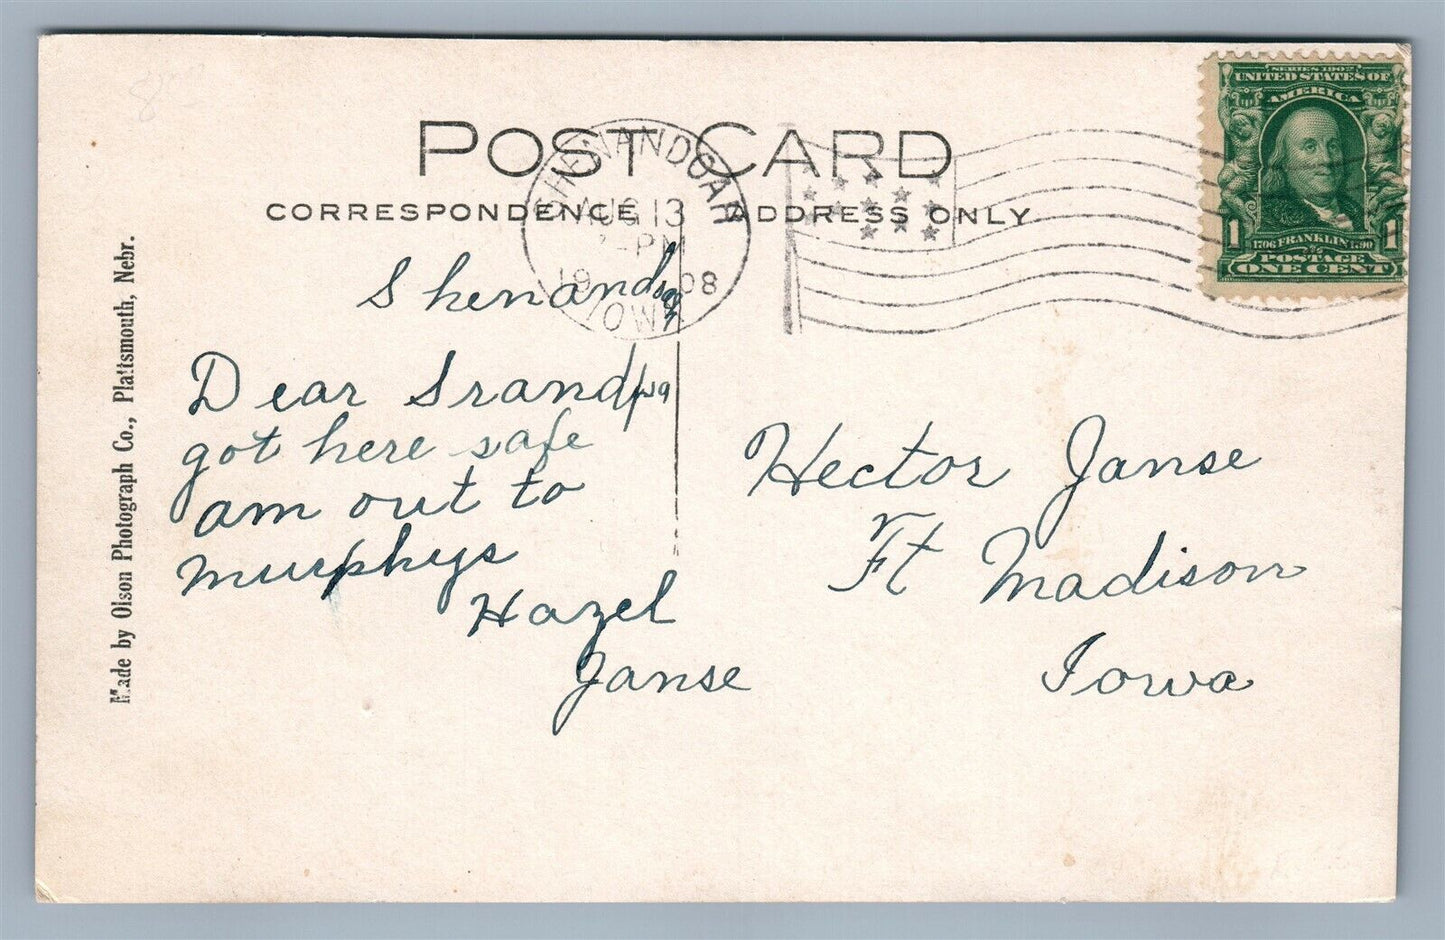 POST CARD
CORRESPONDENCE
ADDRESS ONLY
SHENANDOAH
AUG 13
PM
1908
IOWA
SERIES 1902
UNITED STATES OF
AMERICA
1 1706 FRANKLIN 1790 1
POSTAGE
ONE CENT
Made by Olson Photograph Co., Plattsmouth, Nebr.
Shenandoah
Dear Grandpa
got here safe
am out to
murphys
Hazel
Janse
Hector Janse
Ft Madison
Iowa